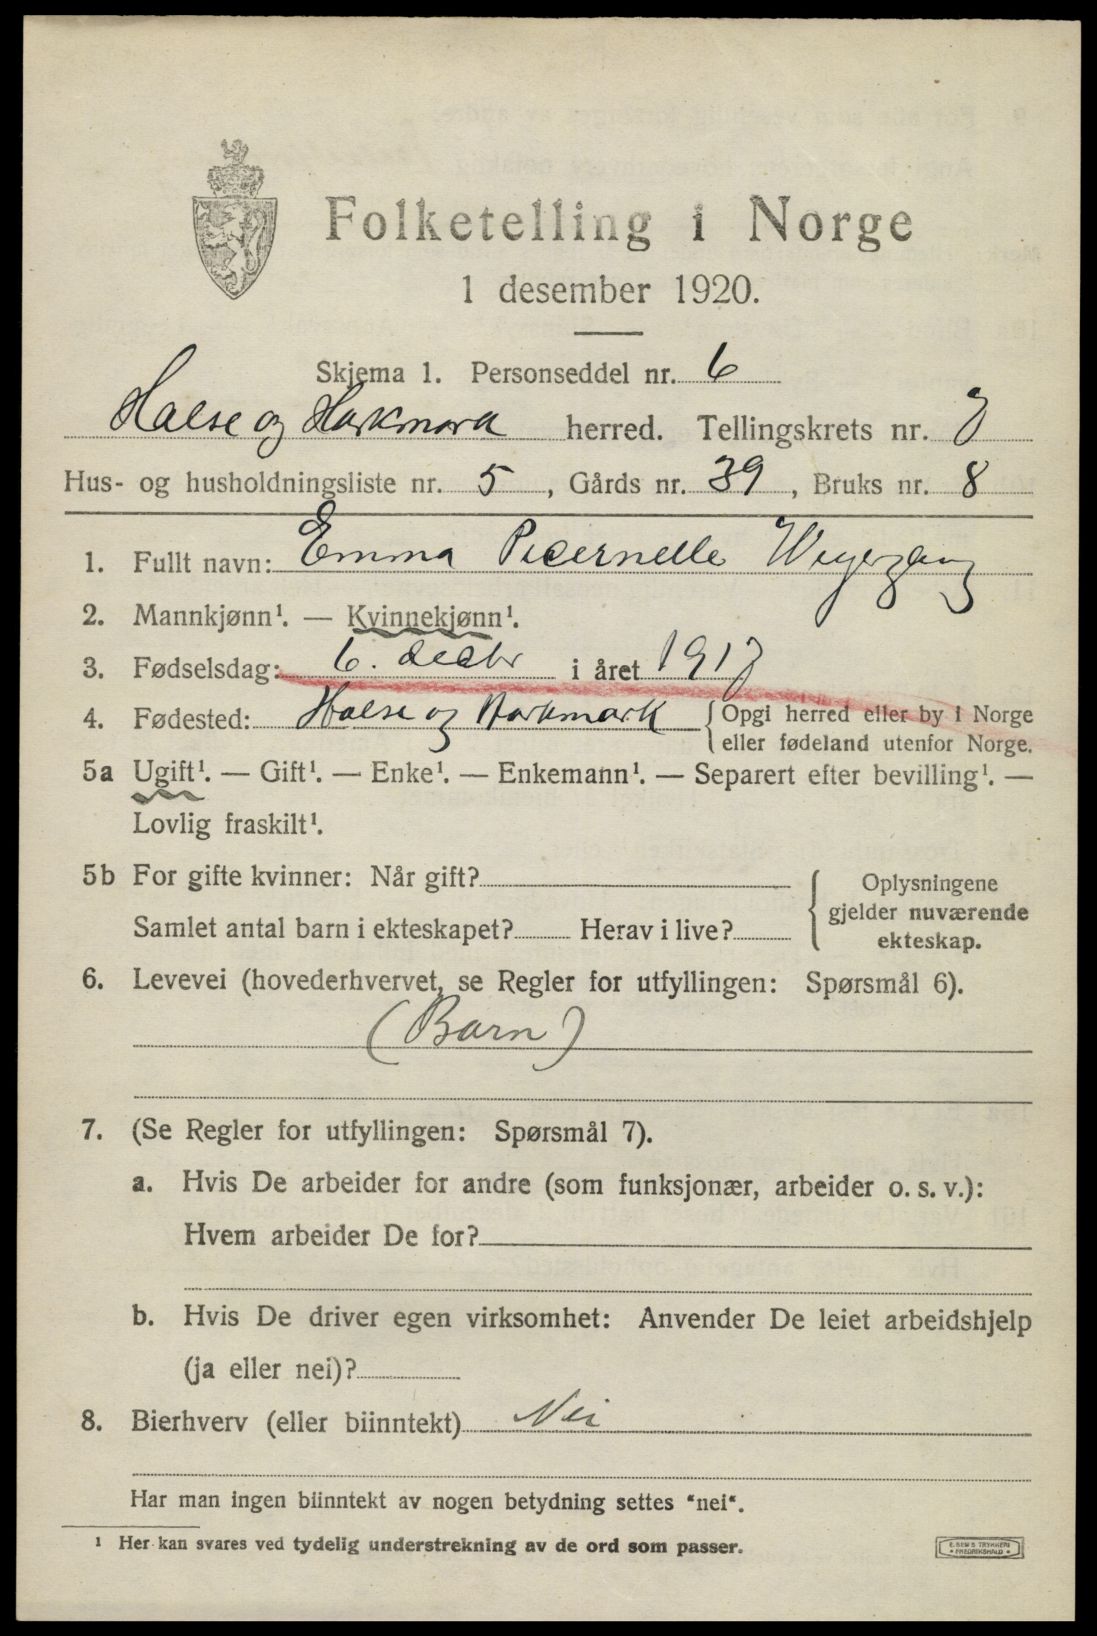 Folketelling i Norge
1 desember 1920.
Skjema 1. Personseddel nr. 6
Halse og Harkmark herred. Tellingskrets nr.
Hus- og husholdningsliste nr. 5, Gårds nr. 39, Bruks nr. 8
1. Fullt navn: Emma
2. Mannkjønn¹. — Kvinnekjønn¹.
3. Fødselsdag: 6. decbr i året 1917
4. Fødested: Halse og Harkmark {Opgi herred eller by i Norge
eller fødeland utenfor Norge.
5a Ugift¹. — Gift¹. — Enke¹. — Enkemann¹. — Separert efter bevilling¹. —
Lovlig fraskilt¹.
5b For gifte kvinner: Når gift?
Samlet antal barn i ekteskapet? Herav i live?
{Oplysningene
gjelder nuværende
ekteskap.
6. Levevei (hovederhvervet, se Regler for utfyllingen: Spørsmål 6).
(Barn)
7. (Se Regler for utfyllingen: Spørsmål 7).
a. Hvis De arbeider for andre (som funksjonær, arbeider o. s. v.):
Hvem arbeider De for?
b. Hvis De driver egen virksomhet: Anvender De leiet arbeidshjelp
(ja eller nei)?
8. Bierhverv (eller biinntekt) Nei
Har man ingen biinntekt av nogen betydning settes "nei".
¹ Her kan svares ved tydelig understrekning av de ord som passer.
E. SEM'S TRYKKERI
• FREDRIKSHALD •